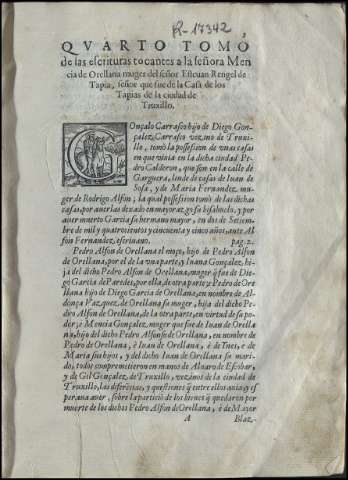 R-17342
QVARTO TOMO
de las escrituras tocantes a la señora Men
cia de Orellana muger del señor Esteuan Rengel de
Tapia, señor que fue de la Casa de los
Tapias de la ciudad de
Truxillo.
Onçalo Carrasco hijo de Diego Gon-
çalez Carrasco vezino de Truxi-
llo, tomò la possession de vnas casas
en que viuia en la dicha ciudad Pe-
dro Calderon, que son en la calle de
Garguera, linde de casas de Iuan de
Sosa, y de Maria Fernandez, mu-
ger de Rodrigo Alfon; la qual possession tomò de las dichas
casas, por auerlas dexado en mayorazgo su bisabuelo, y por
auer muerto Garcia su hermano mayor, en dos de Setiem-
bre de mil y quatrocientos y cincuenta y cinco años, ante Al
fon Fernandez, escriuano. pag. 2.
Pedro Alfon de Orellana el moço, hijo de Pedro Alfon
de Orellana, por el de la vna parte, y Iuana Gonçalez, hi-
ja del dicho Pedro Alfon de Orellana, muger q̃ fue de Die-
go Garcia de Paredes, por ella, de otra parte, y Pedro de Ore
llana hijo de Diego Garcia de Orellana, en nombre de Al-
donça Vazquez, de Orellana su muger, hija del dicho Pe-
dro Alfon de Orellana, de la otra parte, en virtud de su po-
der, e Mencia Gonçalez, muger que fue de Iuan de Orella
na, hijo del dicho Pedro Alfonso de Orellana, en nombre
de Pedro de Orellana, è Iuan de Orellana, è de Ines, è de
Maria sus hijos, y del dicho Iuan de Orellana su mari-
do, todos comprometieron en manos de Aluaro de Escobar,
y de Gil Gonçalez, de Truxillo, vezinos de la ciudad de
Truxillo, las diferẽcias, y questiones q̃ entre ellos auia, y es
perauan auer, sobre la particiõ de los bienes q̃ quedaron por
muerte de los dichos Pedro Alfon de Orellana, è de Mayor
A Blaz-